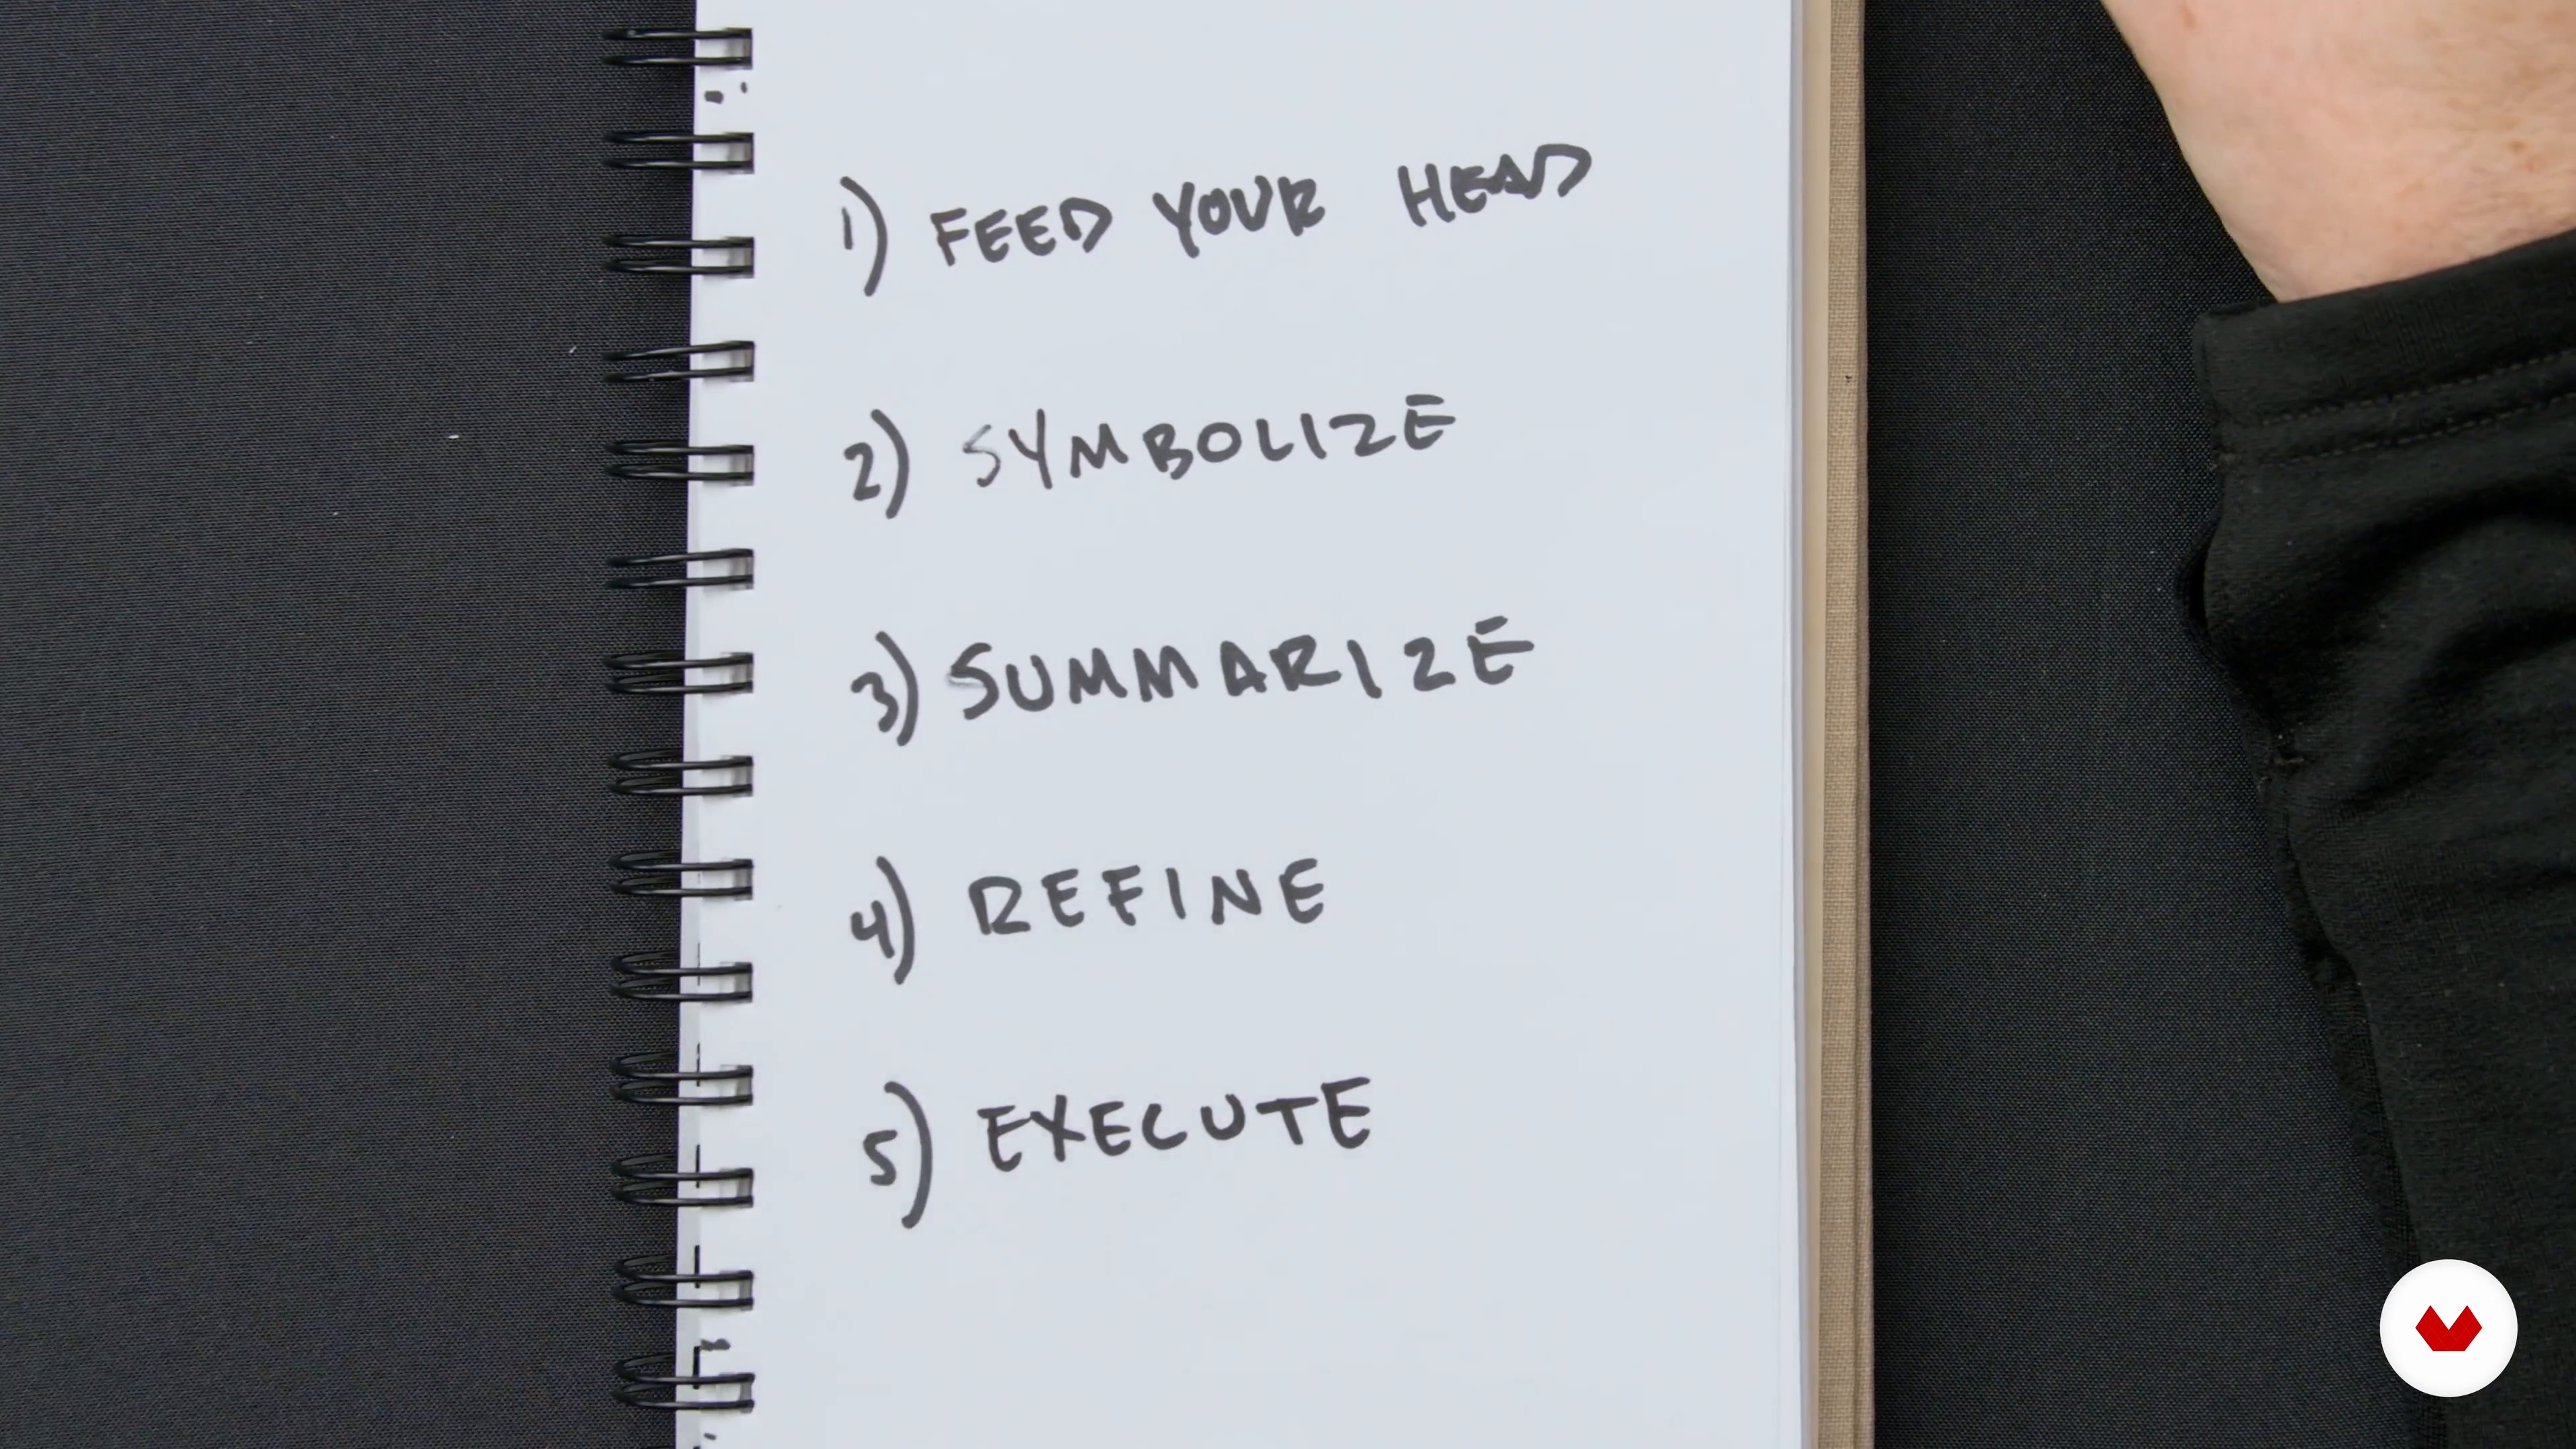 1) FEED YOUR HEAD
2) SYMBOLIZE
3) SUMMARIZE
4) REFINE
5) EXECUTE